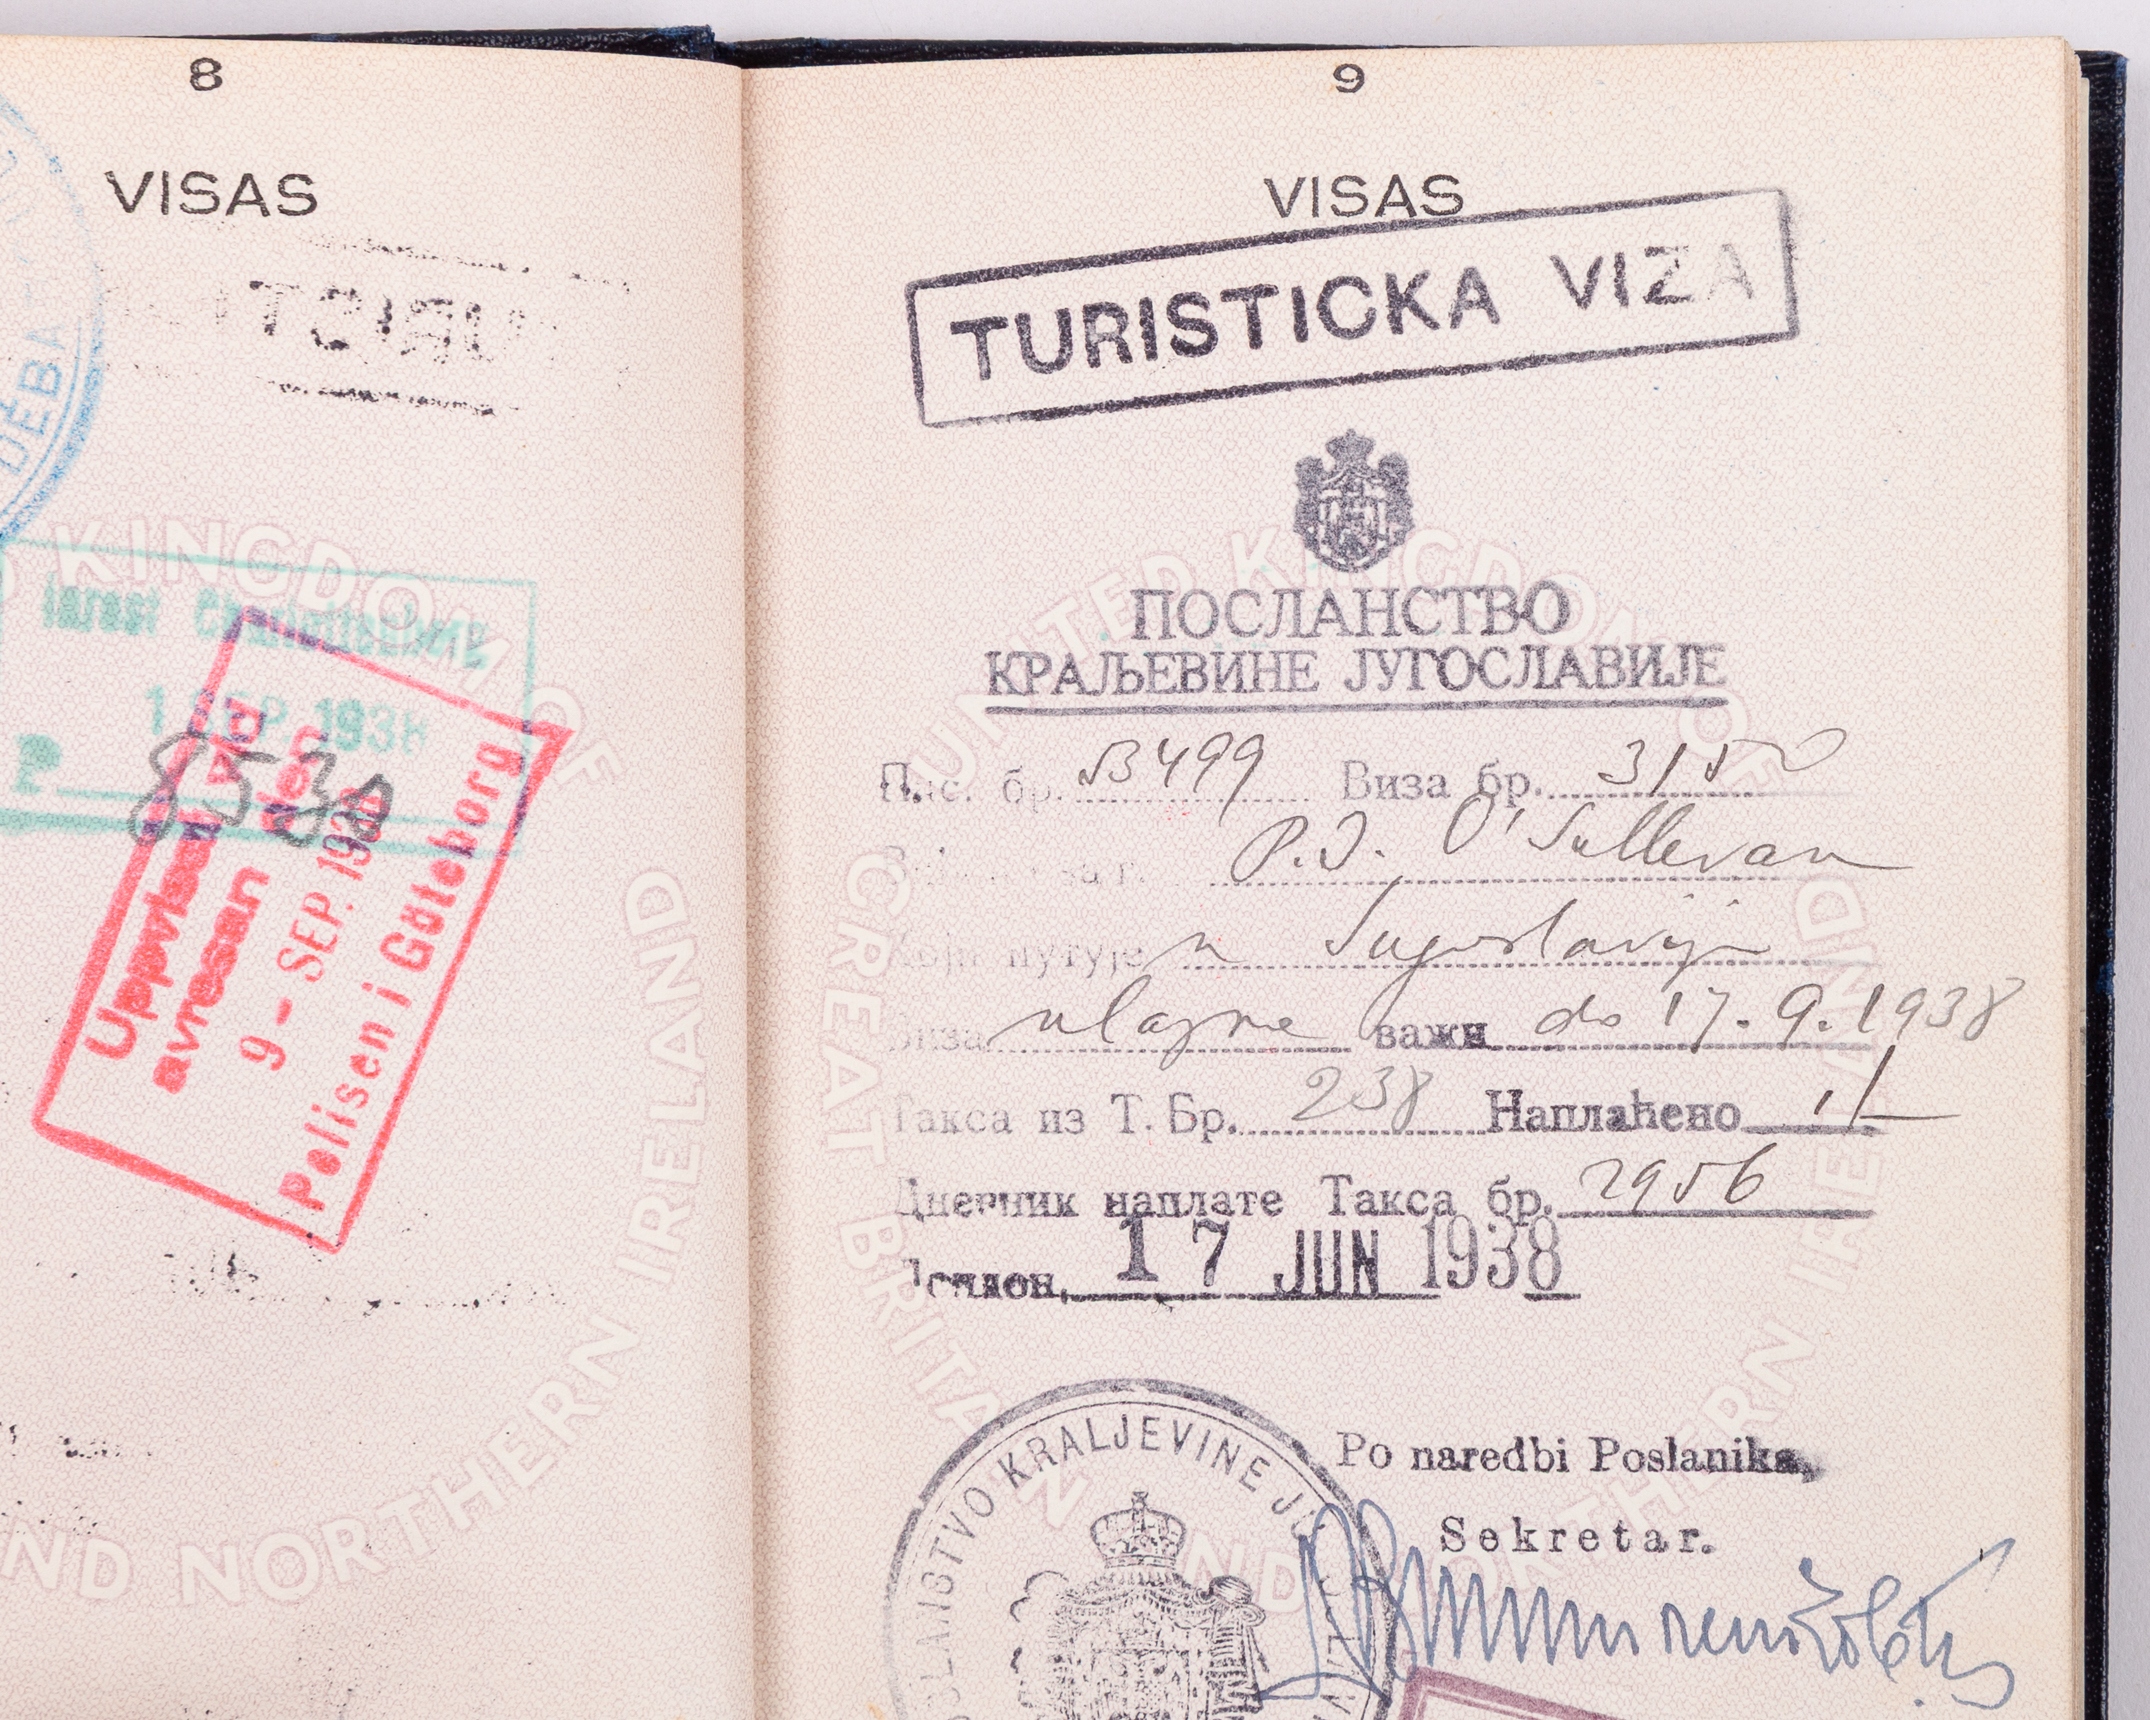 8
VISAS
DEBA
Inrest Charlottenberg
1 SEP. 1938
P
8538
Uppvisat vid
avresan den
9 - SEP. 1938
Polisen i Göteborg
KINGDOM OF
NORTHERN IRELAND
9
VISAS
TURISTICKA VIZA
ПОСЛАНСТВО
КРАЉЕВИНЕ ЈУГОСЛАВИЈЕ
бр. Виза бр. 3150
P.J. O'Sullevan
путује u Jugoslaviju
Виза ulazne важи do 17.9.1938
Такса из Т. Бр. 238 Наплаћено
Дневник наплате Такса бр. 2956
Лондон, 17 JUN 1938
UNITED KINGDOM OF
GREAT BRITAIN AND NORTHERN IRELAND
POSLANSTVO KRALJEVINE
Po naredbi Poslanika,
Sekretar.